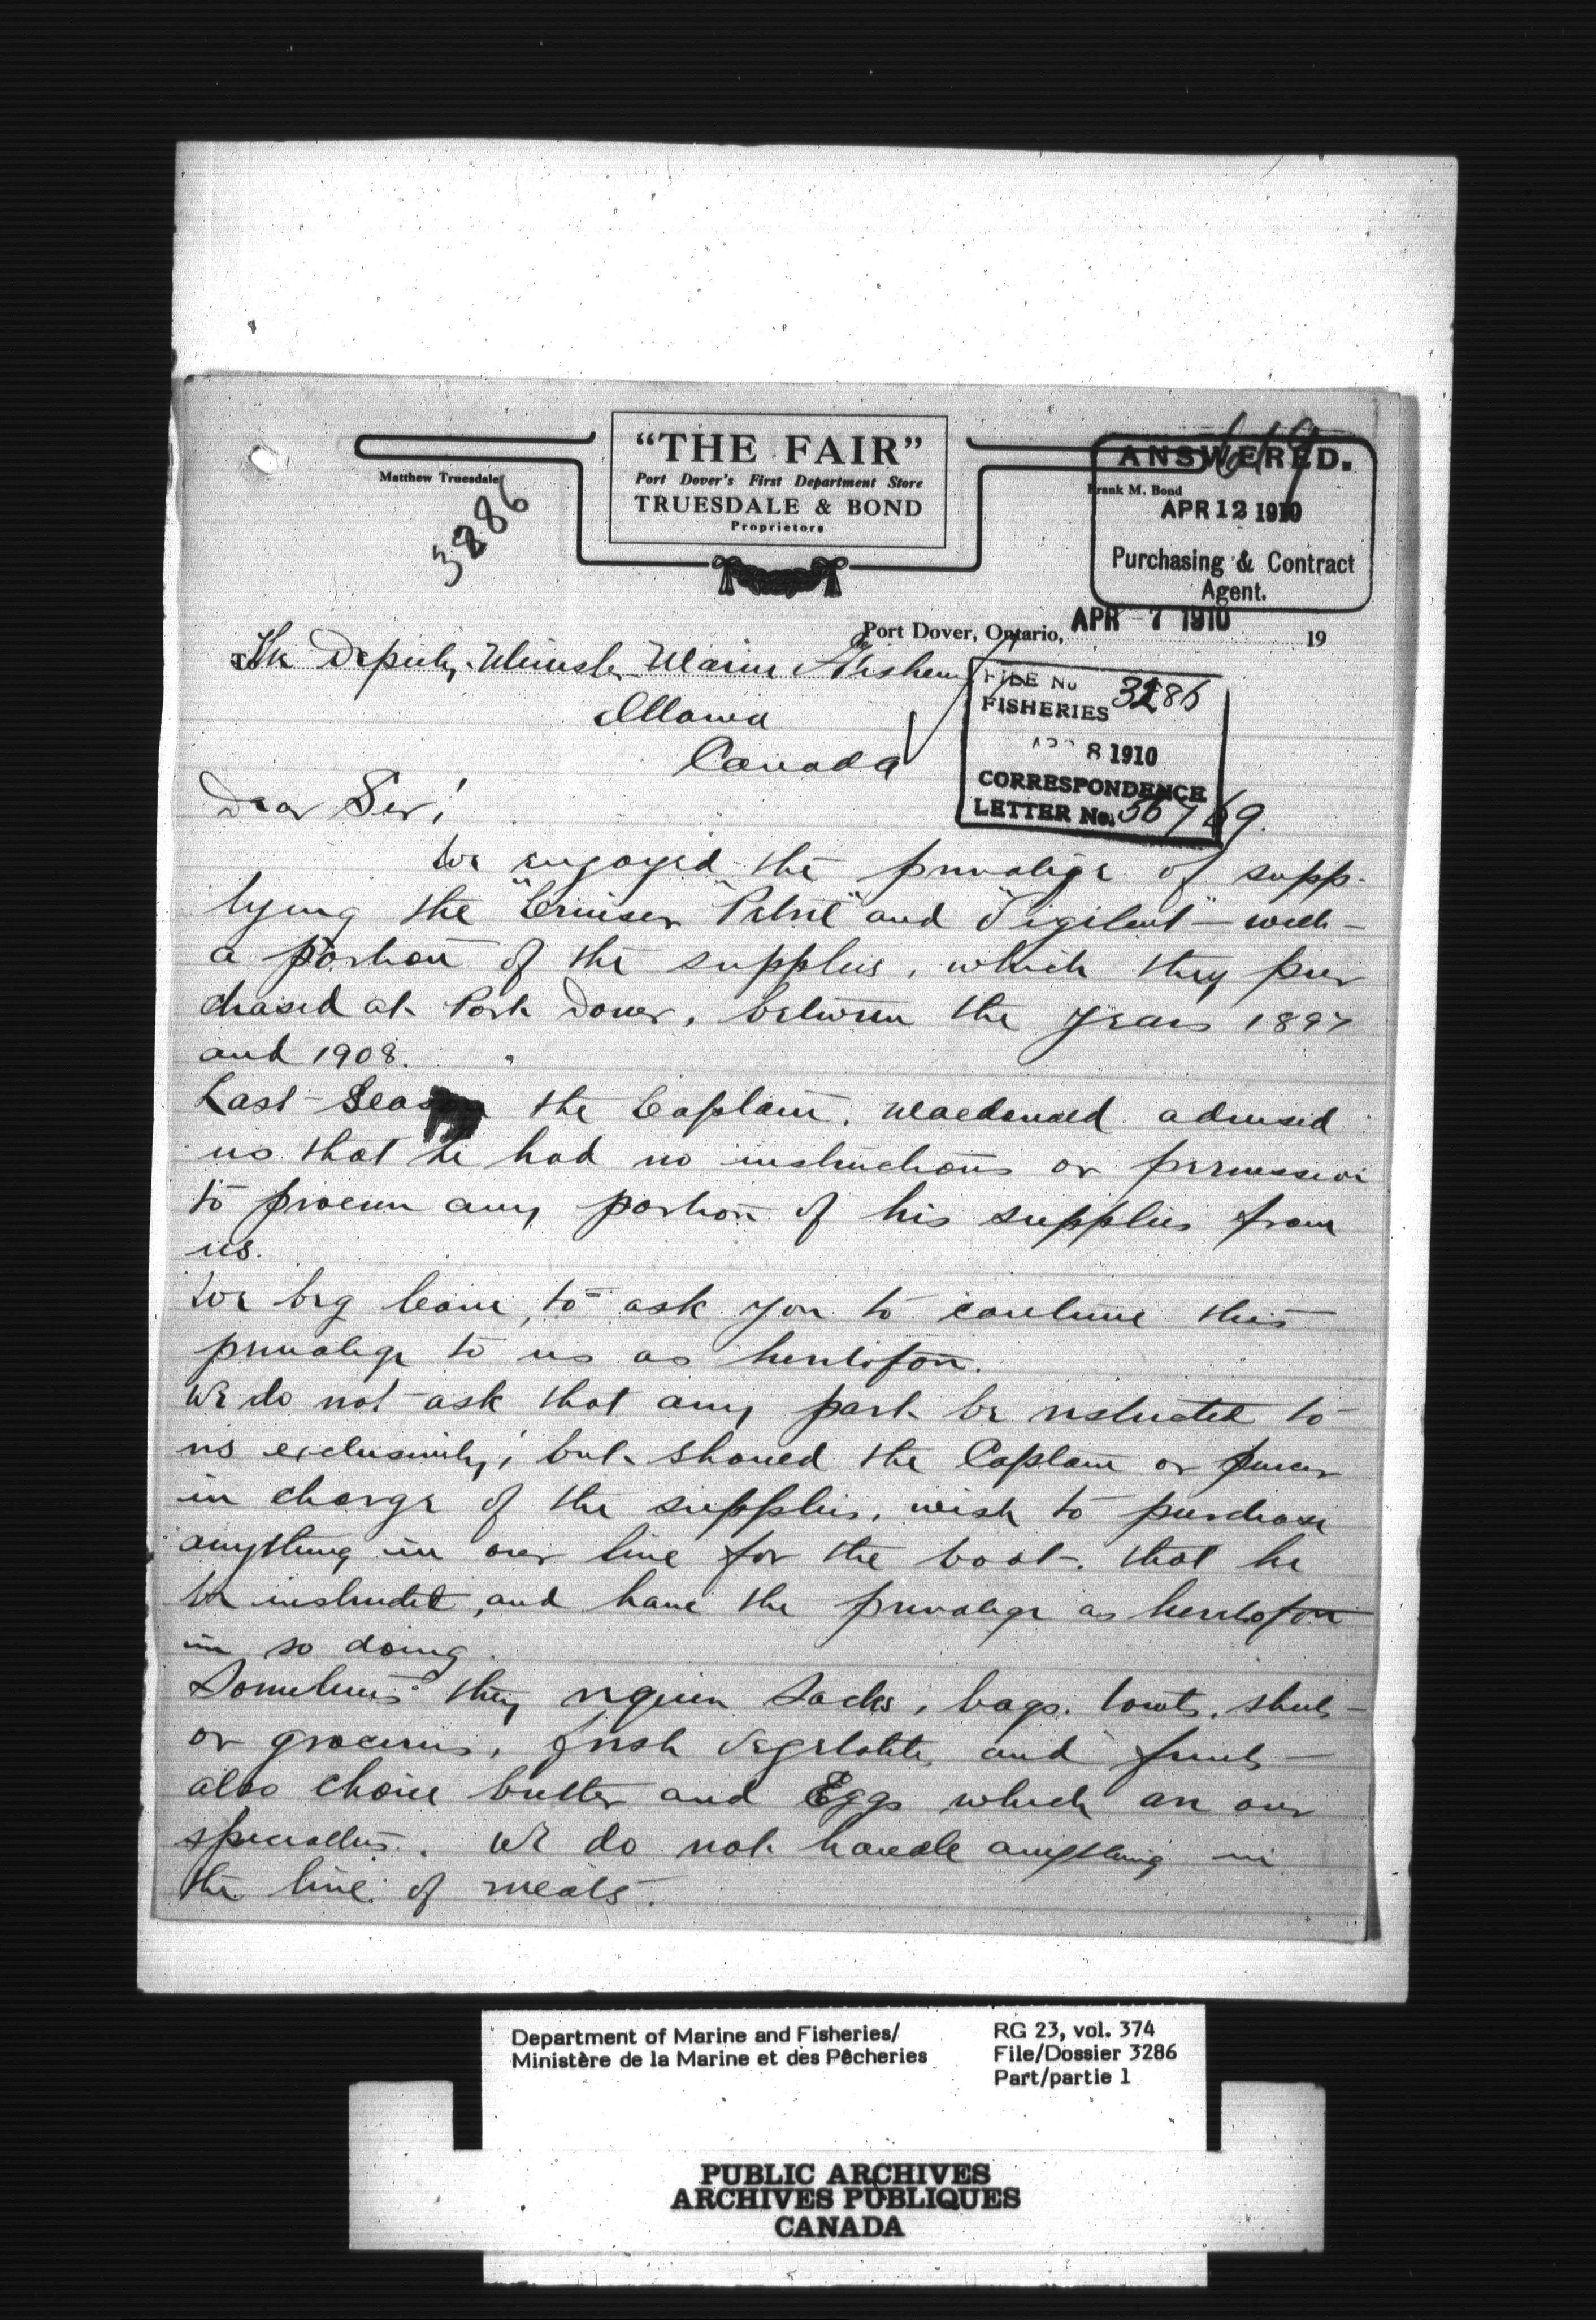 "THE FAIR"
Port Dover's First Department Store
TRUESDALE & BOND
Proprietors
Matthew Truesdale
Frank M. Bond
3286
ANSWERED.
APR 12 1910
Purchasing & Contract
Agent.
Port Dover, Ontario, APR 7 1910 19
The Deputy Minister Marine & Fishery
Ottawa
Canada
FILE No 3286
FISHERIES
8 1910
CORRESPONDENCE
LETTER No.
Dear Sir!
We enjoyed the privalige of supp-
lying the "Cruiser "Petrel" and Vigilant" with
a portion of the supplies, which they pur
chased at Port Dover, between the years 1897
and 1908.
Last Season the Captain, Macdonald advised
us that he had no instructions or permission
to procure any portion of his supplies from
us.
We beg leave, to ask you to continue this
privalige to us as heretofore.
We do not ask that any part be restricted to
us exclusively, but should the Captain or purser
in charge of the supplies, wish to purchase
anything in our line for the boat, that he
be instructed, and have the privalege as heretofore
in so doing.
Sometimes they require Sacks, bags, towels, sheets
or groceries, fresh vegetables and fruits
also choice butter and Eggs which are our
specialties. We do not handle anything in
the line of meats.
Department of Marine and Fisheries/
Ministère de la Marine et des Pêcheries
RG 23, vol. 374
File/Dossier 3286
Part/partie 1
PUBLIC ARCHIVES
ARCHIVES PUBLIQUES
CANADA